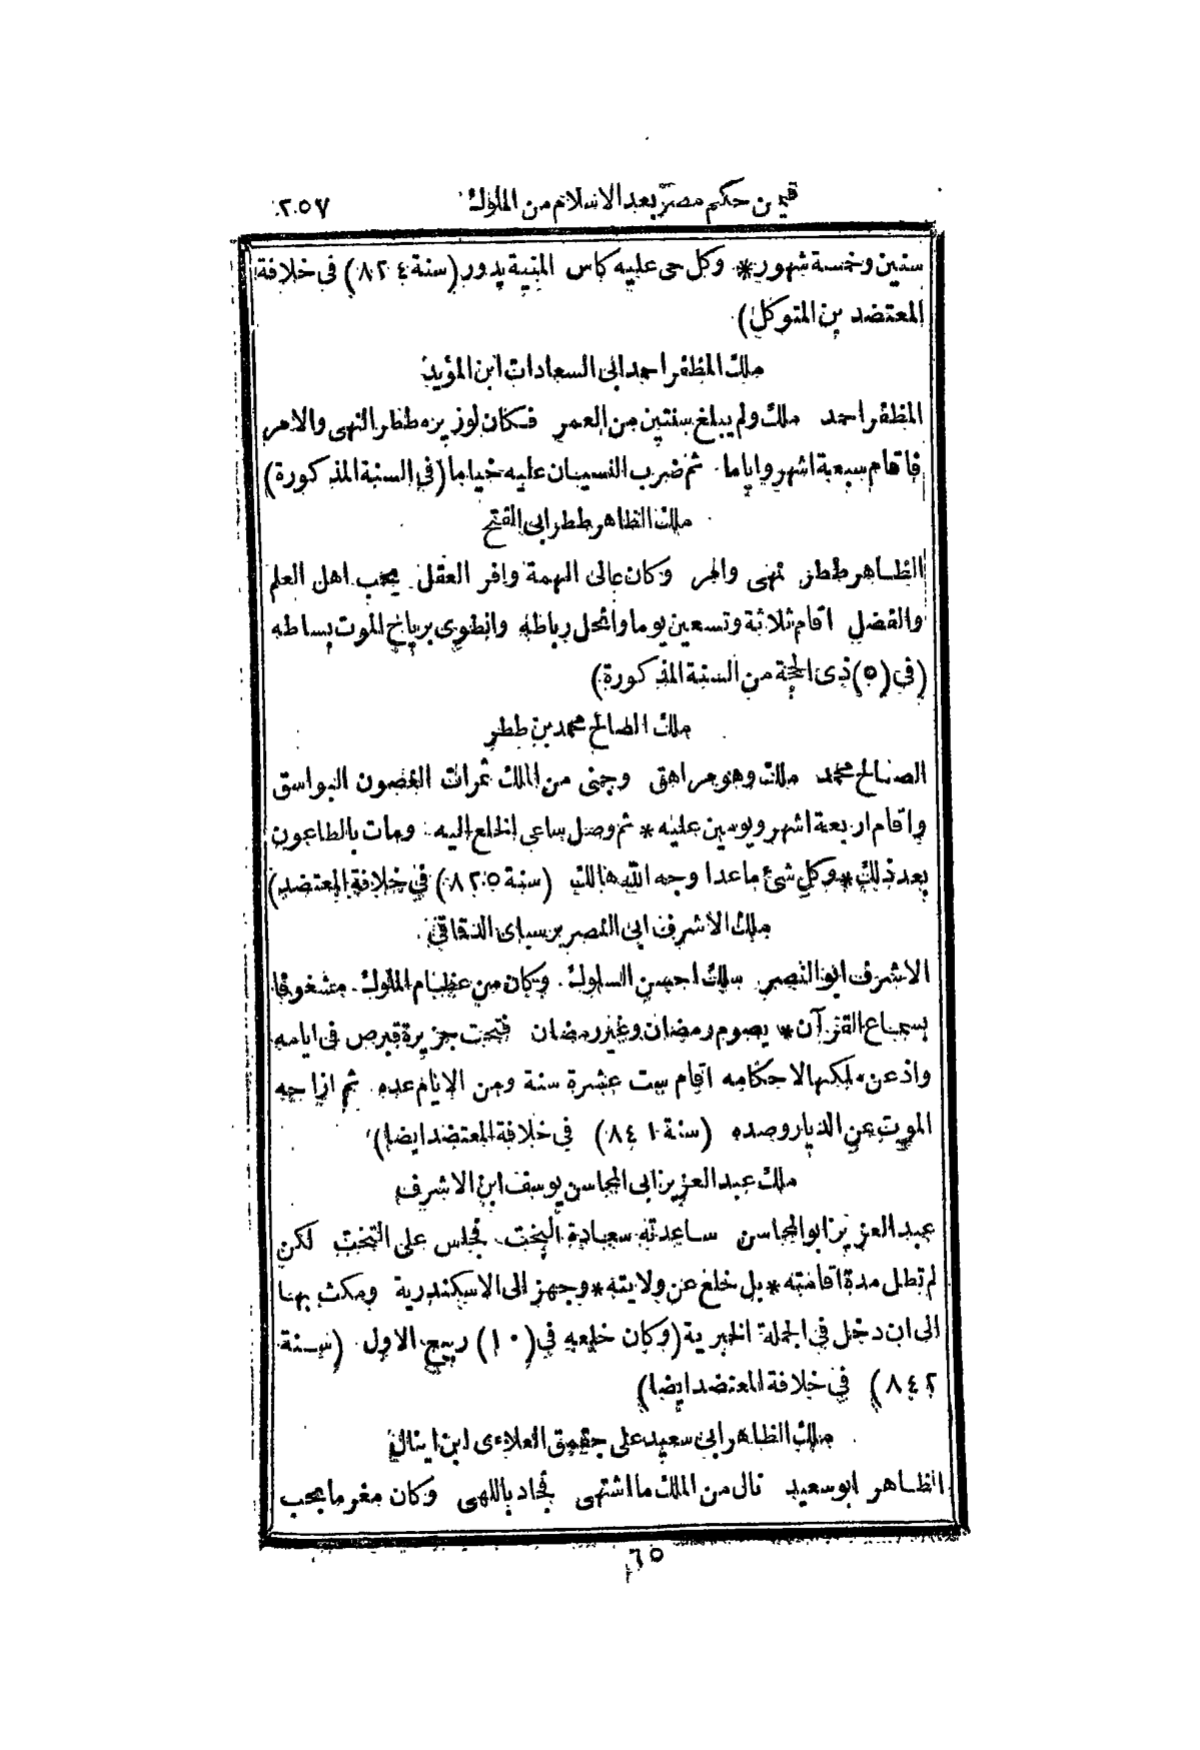 فيمن حكم مصر بعد الاسلام من الملوك ٢٠٥٧
سنين وخمسة شهور * وكل حى عليه كاس المنية يدور (سنة ٨٢٤) فى خلافة
المعتضد بن المتوكل)
ملك المظفر احمد ابى السعادات ابن المؤيد
المظفر احمد ملك ولم يبلغ سنتين من العمر فكان لوزيره ططر النهى والامر
فاقام سبعة اشهر واياما ثم ضرب النسيان عليه خياما (فى السنة المذكورة)
ملك الظاهر ططر ابى الفتح
الظاهر ططر نهى وامر وكان عالى الهمة وافر العقل يحب اهل العلم
والفضل اقام ثلاثة وتسعين يوما وانحل رباطه وانطوى برياح الموت بساطه
(فى (٥) ذى الحجة من السنة المذكورة)
ملك الصالح محمد بن ططر
الصالح محمد ملك وهو مراهق وجنى من الملك ثمرات الغصون البواسق
واقام اربعة اشهر ويومين عليه * ثم وصل ساعى الخلع اليه ومات بالطاعون
بعد ذلك * وكل شئ ماعدا وجه الله هالك (سنة ٨٢٥) فى خلافة المعتضد)
ملك الاشرف ابى النصر برسباى الدقاقى
الاشرف ابو النصر سلك احسن السلوك. وكان من عظام الملوك. مشغوفا
بسماع القرآن * يصوم رمضان وغير رمضان فتحت جزيرة قبرص فى ايامه
واذعن ملكها لاحكامه اقام ست عشرة سنة ومن الايام عده ثم ازاحه
الموت عن الديار وصده (سنة ٨٤١) فى خلافة المعتضد ايضا)
ملك عبد العزيز ابى المحاسن يوسف ابن الاشرف
عبد العزيز ابو المحاسن ساعدته سعادة البخت فجلس على التخت لكن
لم تطل مدة اقامته * بل خلع عن ولايته * وجهز الى الاسكندرية ومكث بها
الى ان دخل فى الجملة الخبرية (وكان خلعه فى (١٠) ربيع الاول (سنة
٨٤٢) فى خلافة المعتضد ايضا)
ملك الظاهر ابى سعيد على جقمق العلاءى ابن اينال
الظاهر ابو سعيد نال من الملك ما اشتهى فجاد باللهى وكان مغرما بحب
٦٥